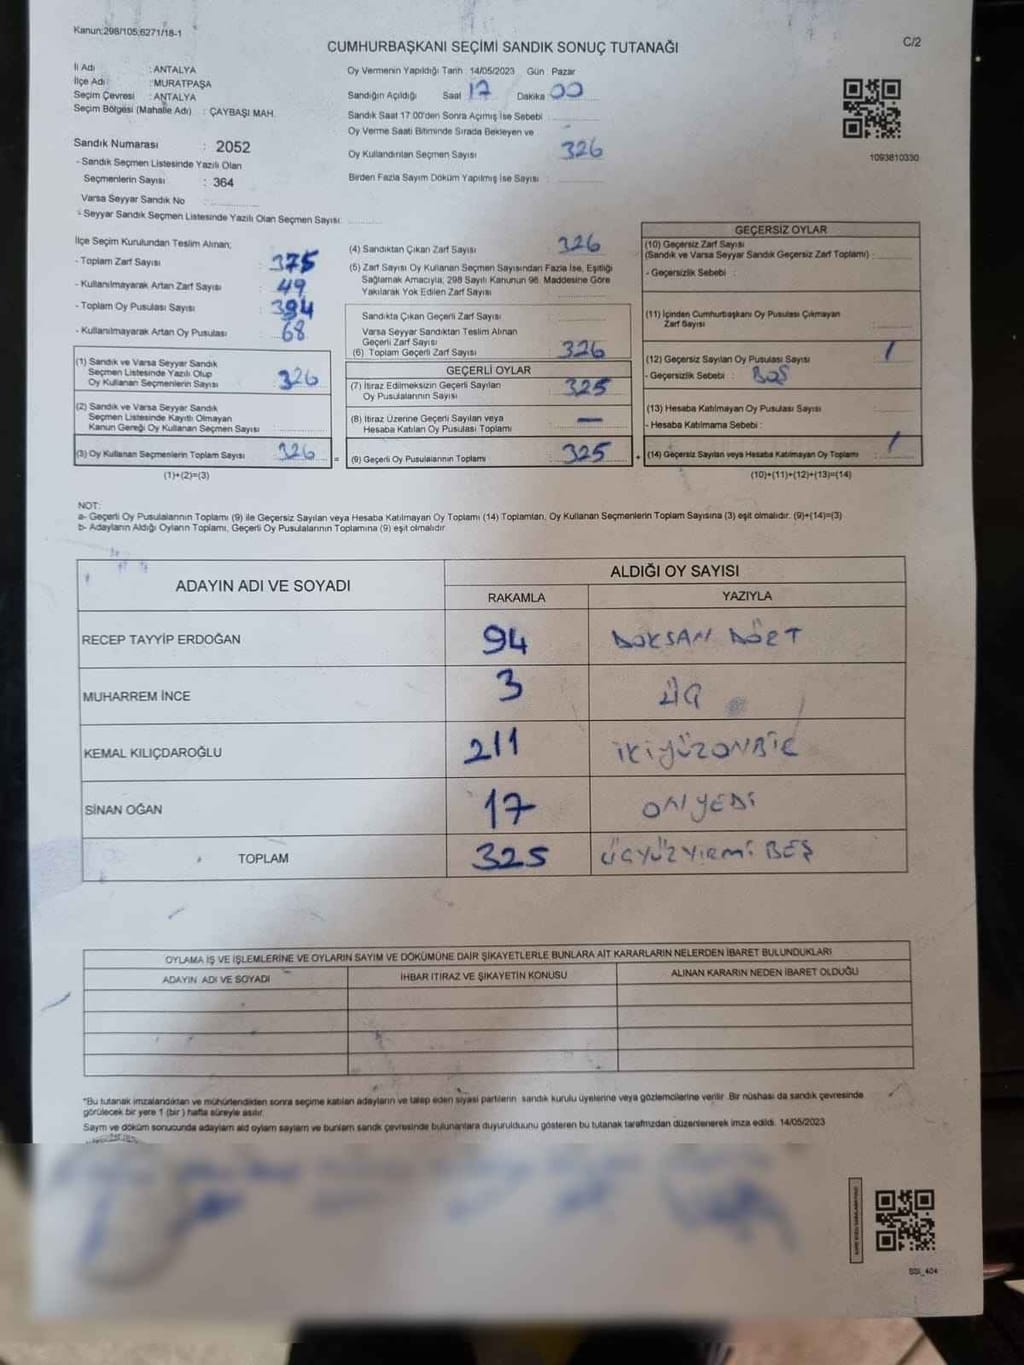 Kanun:298/105;6271/18-1
C/2
CUMHURBAŞKANI SEÇİMİ SANDIK SONUÇ TUTANAĞI
İl Adı : ANTALYA
İlçe Adı : MURATPAŞA
Seçim Çevresi : ANTALYA
Seçim Bölgesi (Mahalle Adı) : ÇAYBAŞI MAH.
Sandık Numarası : 2052
- Sandık Seçmen Listesinde Yazılı Olan
Seçmenlerin Sayısı : 364
Varsa Seyyar Sandık No
- Seyyar Sandık Seçmen Listesinde Yazılı Olan Seçmen Sayısı:
Oy Vermenin Yapıldığı Tarih 14/05/2023 Gün : Pazar
Sandığın Açıldığı Saat 17 Dakika 00
Sandık Saat 17.00'den Sonra Açılmış İse Sebebi :
Oy Verme Saati Bitiminde Sırada Bekleyen ve
Oy Kullandırılan Seçmen Sayısı 326
Birden Fazla Sayım Döküm Yapılmış İse Sayısı :
1093810330
İlçe Seçim Kurulundan Teslim Alınan;
- Toplam Zarf Sayısı : 375
- Kullanılmayarak Artan Zarf Sayısı : 49
- Toplam Oy Pusulası Sayısı : 394
- Kullanılmayarak Artan Oy Pusulası : 68
(1) Sandık ve Varsa Seyyar Sandık
Seçmen Listesinde Yazılı Olup
Oy Kullanan Seçmenlerin Sayısı 326
(2) Sandık ve Varsa Seyyar Sandık
Seçmen Listesinde Kayıtlı Olmayan
Kanun Gereği Oy Kullanan Seçmen Sayısı
(3) Oy Kullanan Seçmenlerin Toplam Sayısı 326
(1)+(2)=(3)
(4) Sandıktan Çıkan Zarf Sayısı 326
(5) Zarf Sayısı Oy Kullanan Seçmen Sayısından Fazla İse, Eşitliği
Sağlamak Amacıyla; 298 Sayılı Kanunun 98. Maddesine Göre
Yakılarak Yok Edilen Zarf Sayısı
Sandıkta Çıkan Geçerli Zarf Sayısı
Varsa Seyyar Sandıktan Teslim Alınan
Geçerli Zarf Sayısı
(6) Toplam Geçerli Zarf Sayısı 326
GEÇERLİ OYLAR
(7) İtiraz Edilmeksizin Geçerli Sayılan
Oy Pusulalarının Sayısı 325
(8) İtiraz Üzerine Geçerli Sayılan veya
Hesaba Katılan Oy Pusulası Toplamı —
= (9) Geçerli Oy Pusulalarının Toplamı 325 +
GEÇERSİZ OYLAR
(10) Geçersiz Zarf Sayısı
(Sandık ve Varsa Seyyar Sandık Geçersiz Zarf Toplamı) :
- Geçersizlik Sebebi :
(11) İçinden Cumhurbaşkanı Oy Pusulası Çıkmayan
Zarf Sayısı
(12) Geçersiz Sayılan Oy Pusulası Sayısı 1
- Geçersizlik Sebebi : BOŞ
(13) Hesaba Katılmayan Oy Pusulası Sayısı
- Hesaba Katılmama Sebebi :
(14) Geçersiz Sayılan veya Hesaba Katılmayan Oy Toplamı 1
(10)+(11)+(12)+(13)=(14)
NOT:
a- Geçerli Oy Pusulalarının Toplamı (9) ile Geçersiz Sayılan veya Hesaba Katılmayan Oy Toplamı (14) Toplamları, Oy Kullanan Seçmenlerin Toplam Sayısına (3) eşit olmalıdır. (9)+(14)=(3)
b- Adayların Aldığı Oyların Toplamı, Geçerli Oy Pusulalarının Toplamına (9) eşit olmalıdır.
ADAYIN ADI VE SOYADI
ALDIĞI OY SAYISI
RAKAMLA YAZIYLA
RECEP TAYYİP ERDOĞAN 94 DOKSAN DÖRT
MUHARREM İNCE 3 ÜÇ
KEMAL KILIÇDAROĞLU 211 İKİYÜZONBİR
SİNAN OĞAN 17 ONYEDİ
TOPLAM 325 ÜÇYÜZYİRMİ BEŞ
OYLAMA İŞ VE İŞLEMLERİNE VE OYLARIN SAYIM VE DÖKÜMÜNE DAİR ŞİKAYETLERLE BUNLARA AİT KARARLARIN NELERDEN İBARET BULUNDUKLARI
ADAYIN ADI VE SOYADI İHBAR İTİRAZ VE ŞİKAYETİN KONUSU ALINAN KARARIN NEDEN İBARET OLDUĞU
*Bu tutanak imzalandıktan ve mühürlendikten sonra seçime katılan adayların ve talep eden siyasi partilerin sandık kurulu üyelerine veya gözlemcilerine verilir. Bir nüshası da sandık çevresinde
görülecek bir yere 1 (bir) hafta süreyle asılır.
Sayım ve döküm sonucunda adayların aldığı oyların sayılarını ve bunların sandık çevresinde bulunanlara duyurulduğunu gösteren bu tutanak tarafımızdan düzenlenerek imza edildi. 14/05/2023
SSI_404